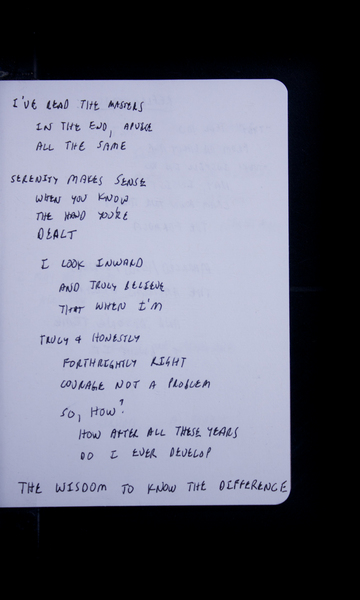 I'VE READ THE MASTERS
IN THE END,
ALL THE SAME
SERENITY MAKES SENSE
WHEN YOU KNOW
THE HAND YOU'RE
DEALT
I LOOK INWARD
AND TRULY BELIEVE
THAT WHEN I'M
TRULY & HONESTLY
FORTHRIGHTLY RIGHT
COURAGE NOT A PROBLEM
SO, HOW?
HOW AFTER ALL THESE YEARS
DO I EVER DEVELOP
THE WISDOM TO KNOW THE DIFFERENCE